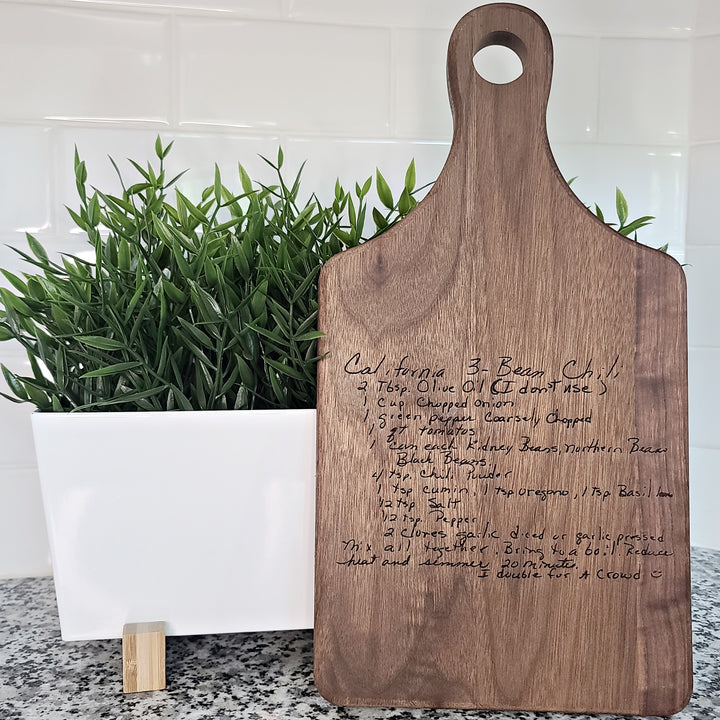 California 3-Bean Chili
2 Tbsp. Olive Oil (I don't use)
1 Cup Chopped onion
1 green pepper Coarsely Chopped
1 qt tomatos
1 can each Kidney Beans, Northern Beans
Black Beans
4 tsp. Chili Powder
1 tsp cumin, 1 tsp oregano, 1 tsp Basil
1/2 tsp. Salt
1/2 tsp. Pepper
2 cloves garlic diced or garlic pressed
Mix all together. Bring to a boil. Reduce
heat and simmer 20 minutes.
I double for A Crowd ☺